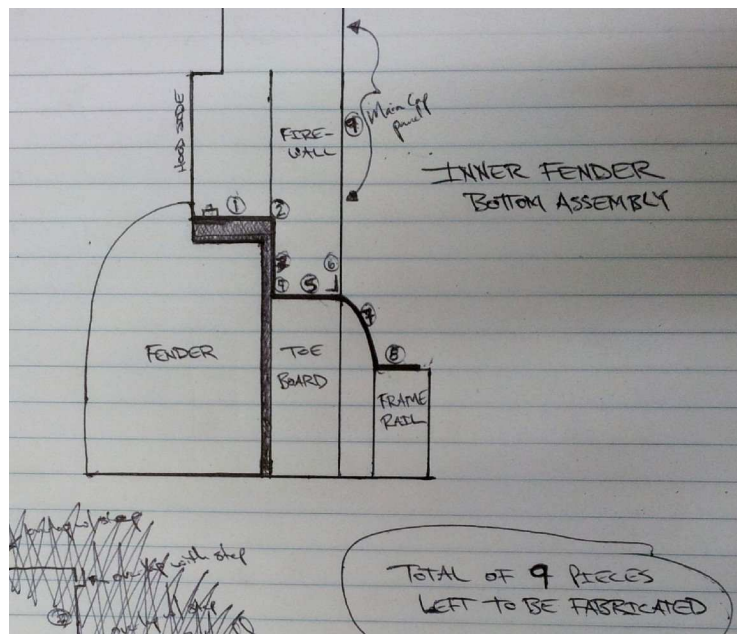 HOOD SIDE
FIRE-
WALL
9
Main
INNER FENDER
BOTTOM ASSEMBLY
1
2
4
5
6
7
8
FENDER
TOE
BOARD
FRAME
RAIL
overlap with step
TOTAL OF 9 PIECES
LEFT TO BE FABRICATED